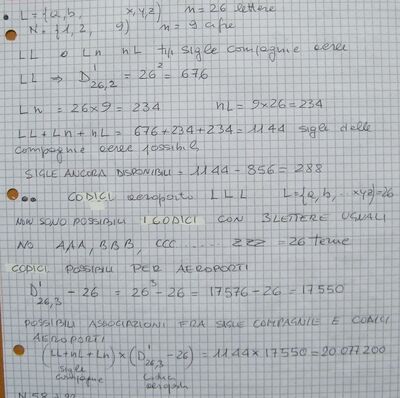 • L = {a, b, x, y, z} n = 26 lettere
N. {1, 2, 9} n = 9 cifre
LL o Ln nL tip sigle compagnie aeree
LL ⇒ D'26,2 = 26² = 676
Ln = 26×9 = 234 nL = 9×26 = 234
LL + Ln + nL = 676 + 234 + 234 = 1144 sigle delle
compagnie aeree possibili
SIGLE ANCORA DISPONIBILI = 1144 - 856 = 288
•• CODICI aeroporto LLL L = {a, b, ... xyz} = 26
NON SONO POSSIBILI I CODICI CON 3 LETTERE UGUALI
NO AAA, BBB, CCC ..... ZZZ = 26 terne
CODICI POSSIBILI PER AEROPORTI
D'26,3 - 26 = 26³ - 26 = 17576 - 26 = 17550
POSSIBILI ASSOCIAZIONI FRA SIGLE COMPAGNIE E CODICI
AEROPORTI
(LL + nL + Ln) × (D'26,3 - 26) = 1144 × 17550 = 20.077200
sigle codici
compagnie aeroporti